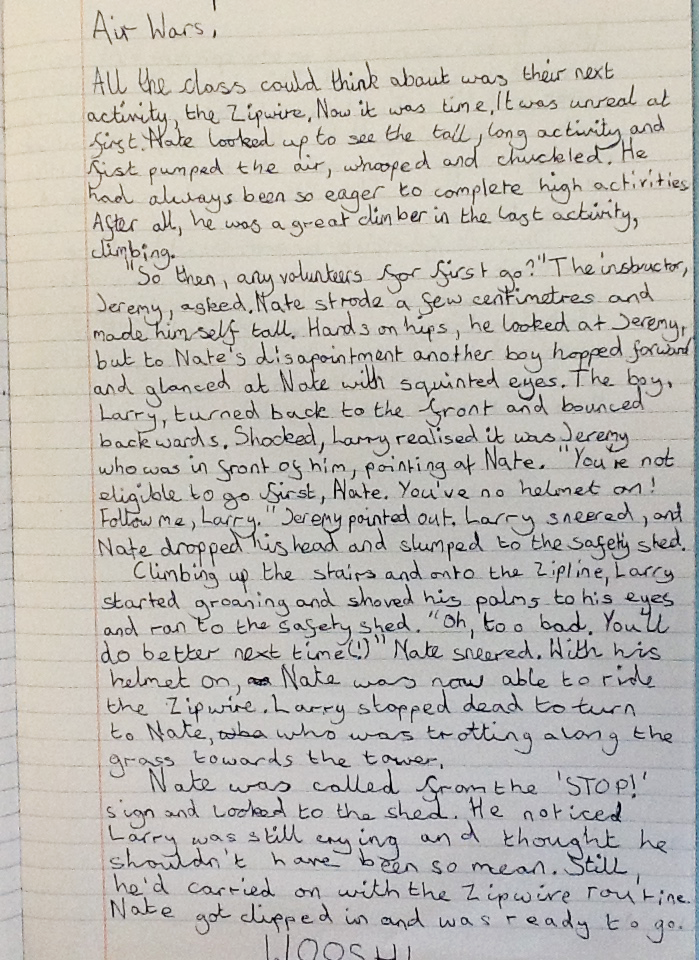 Air Wars!
All the class could think about was their next
activity, the Zipwire. Now it was time. It was unreal at
first. Nate looked up to see the tall, long activity and
fist pumped the air, whooped and chuckled. He
had always been so eager to complete high activities.
After all, he was a great climber in the last activity,
climbing.
"So then, any volunteers for first go?" The instructor,
Jeremy, asked. Nate strode a few centimetres and
made himself tall. Hands on hips, he looked at Jeremy,
but to Nate's disapointment another boy hopped forward
and glanced at Nate with squinted eyes. The boy,
Larry, turned back to the front and bounced
backwards. Shocked, Larry realised it was Jeremy
who was in front of him, pointing at Nate. "You're not
eligible to go first, Nate. You've no helmet on!
Follow me, Larry." Jeremy pointed out. Larry sneered, and
Nate dropped his head and slumped to the safety shed.
Climbing up the stairs and onto the Zipline, Larry
started groaning and shoved his palms to his eyes
and ran to the safety shed. "Oh, too bad. You'll
do better next time(!)" Nate sneered. With his
helmet on, Nate was now able to ride
the Zipwire. Larry stopped dead to turn
to Nate, who was trotting along the
grass towards the tower.
Nate was called from the 'STOP!'
sign and looked to the shed. He noticed
Larry was still crying and thought he
shouldn't have been so mean. Still,
he'd carried on with the Zipwire routine.
Nate got clipped in and was ready to go.
WOOSH!